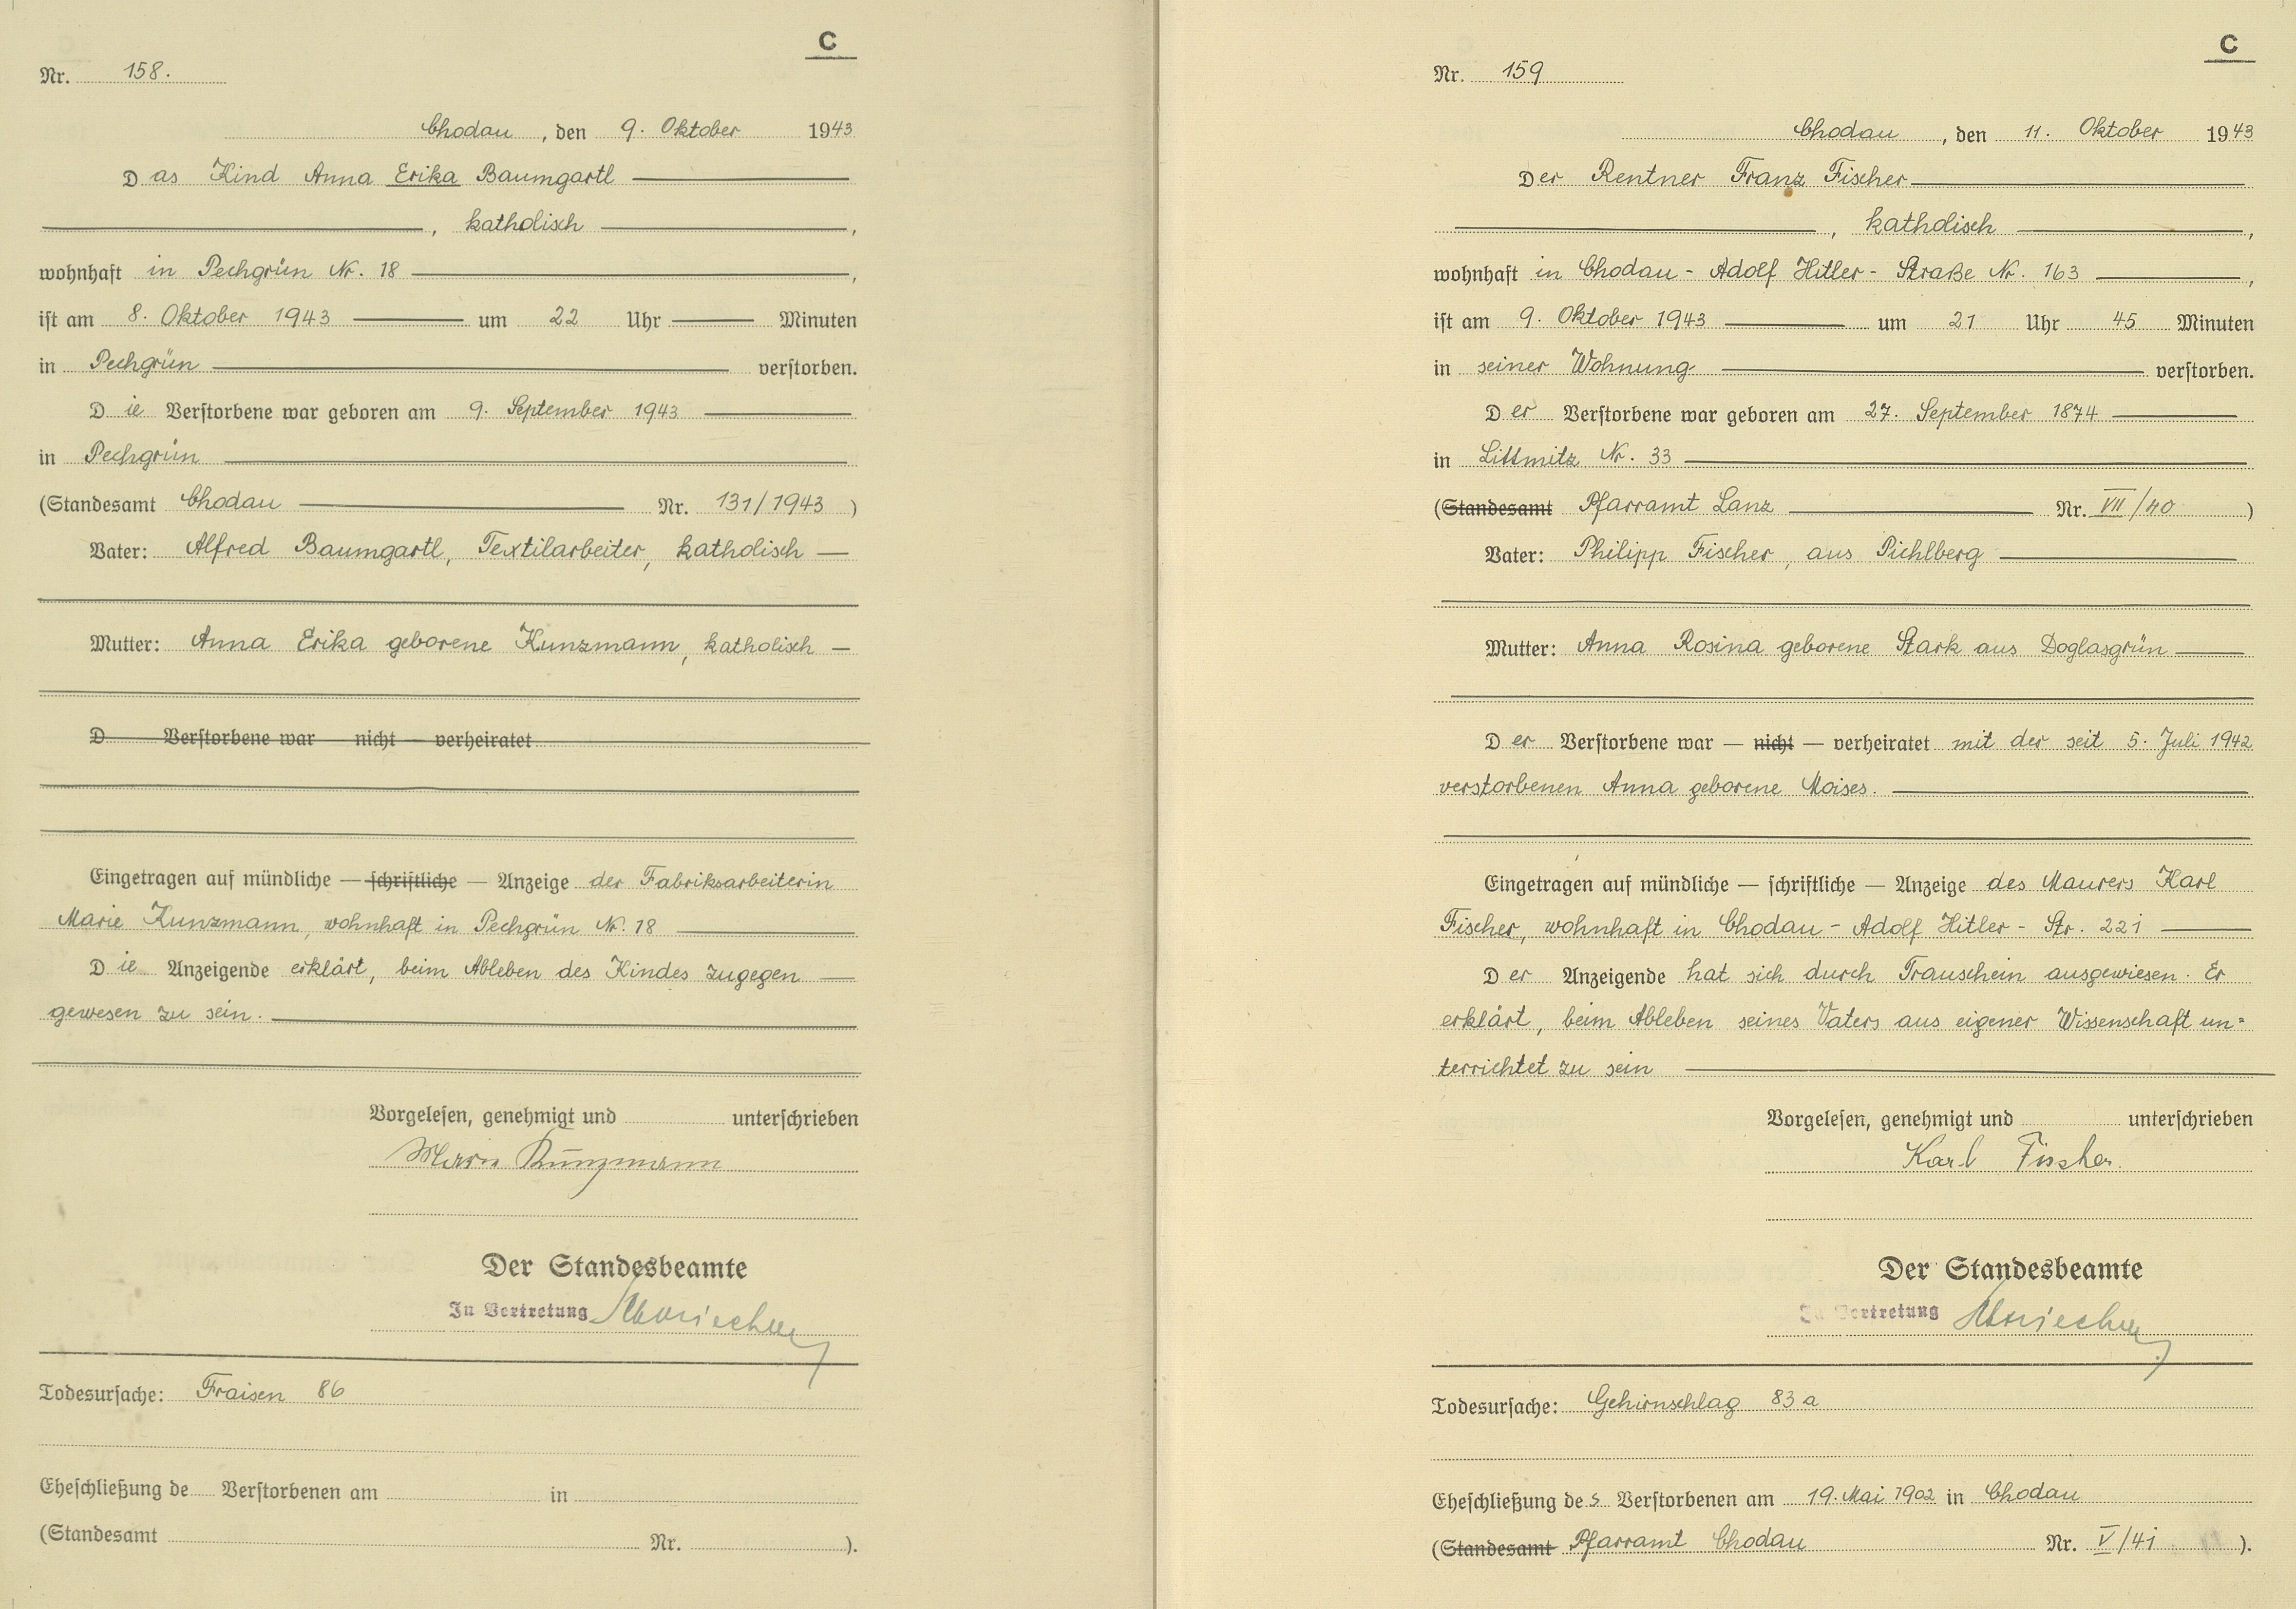 C
Nr. 158.
Chodau, den 9. Oktober 1943
Das Kind Anna Erika Baumgartl
, katholisch ,
wohnhaft in Pechgrün Nr. 18 ,
ist am 8. Oktober 1943 um 22 Uhr Minuten
in Pechgrün verstorben.
Die Verstorbene war geboren am 9. September 1943
in Pechgrün
(Standesamt Chodau Nr. 131/1943 )
Vater: Alfred Baumgartl, Textilarbeiter, katholisch —
Mutter: Anna Erika geborene Kunzmann, katholisch —
D Verstorbene war nicht verheiratet
Eingetragen auf mündliche — schriftliche — Anzeige der Fabriksarbeiterin
Marie Kunzmann, wohnhaft in Pechgrün Nr. 18
Die Anzeigende erklärt, beim Ableben des Kindes zugegen —
gewesen zu sein.
Vorgelesen, genehmigt und unterschrieben
Marie Kunzmann
Der Standesbeamte
In Vertretung
Todesursache: Fraisen 86
Eheschließung de Verstorbenen am in
(Standesamt Nr. ).
C
Nr. 159
Chodau, den 11. Oktober 1943
Der Rentner Franz Fischer
, katholisch ,
wohnhaft in Chodau - Adolf Hitler - Straße Nr. 163 ,
ist am 9. Oktober 1943 um 21 Uhr 45 Minuten
in seiner Wohnung verstorben.
Der Verstorbene war geboren am 27. September 1874
in Littmitz Nr. 33
(Standesamt Pfarramt Lanz Nr. VII/40 )
Vater: Philipp Fischer, aus Pichlberg
Mutter: Anna Rosina geborene Stark aus Doglasgrün
Der Verstorbene war — nicht — verheiratet mit der seit 5. Juli 1942
verstorbenen Anna geborene Moises.
Eingetragen auf mündliche — schriftliche — Anzeige des Maurers Karl
Fischer, wohnhaft in Chodau - Adolf Hitler - Str. 221
Der Anzeigende hat sich durch Trauschein ausgewiesen. Er
erklärt, beim Ableben seines Vaters aus eigener Wissenschaft un=
terrichtet zu sein
Vorgelesen, genehmigt und unterschrieben
Karl Fischer.
Der Standesbeamte
In Vertretung
Todesursache: Gehirnschlag 83 a
Eheschließung des Verstorbenen am 19. Mai 1902 in Chodau
(Standesamt Pfarramt Chodau Nr. V/41 ).